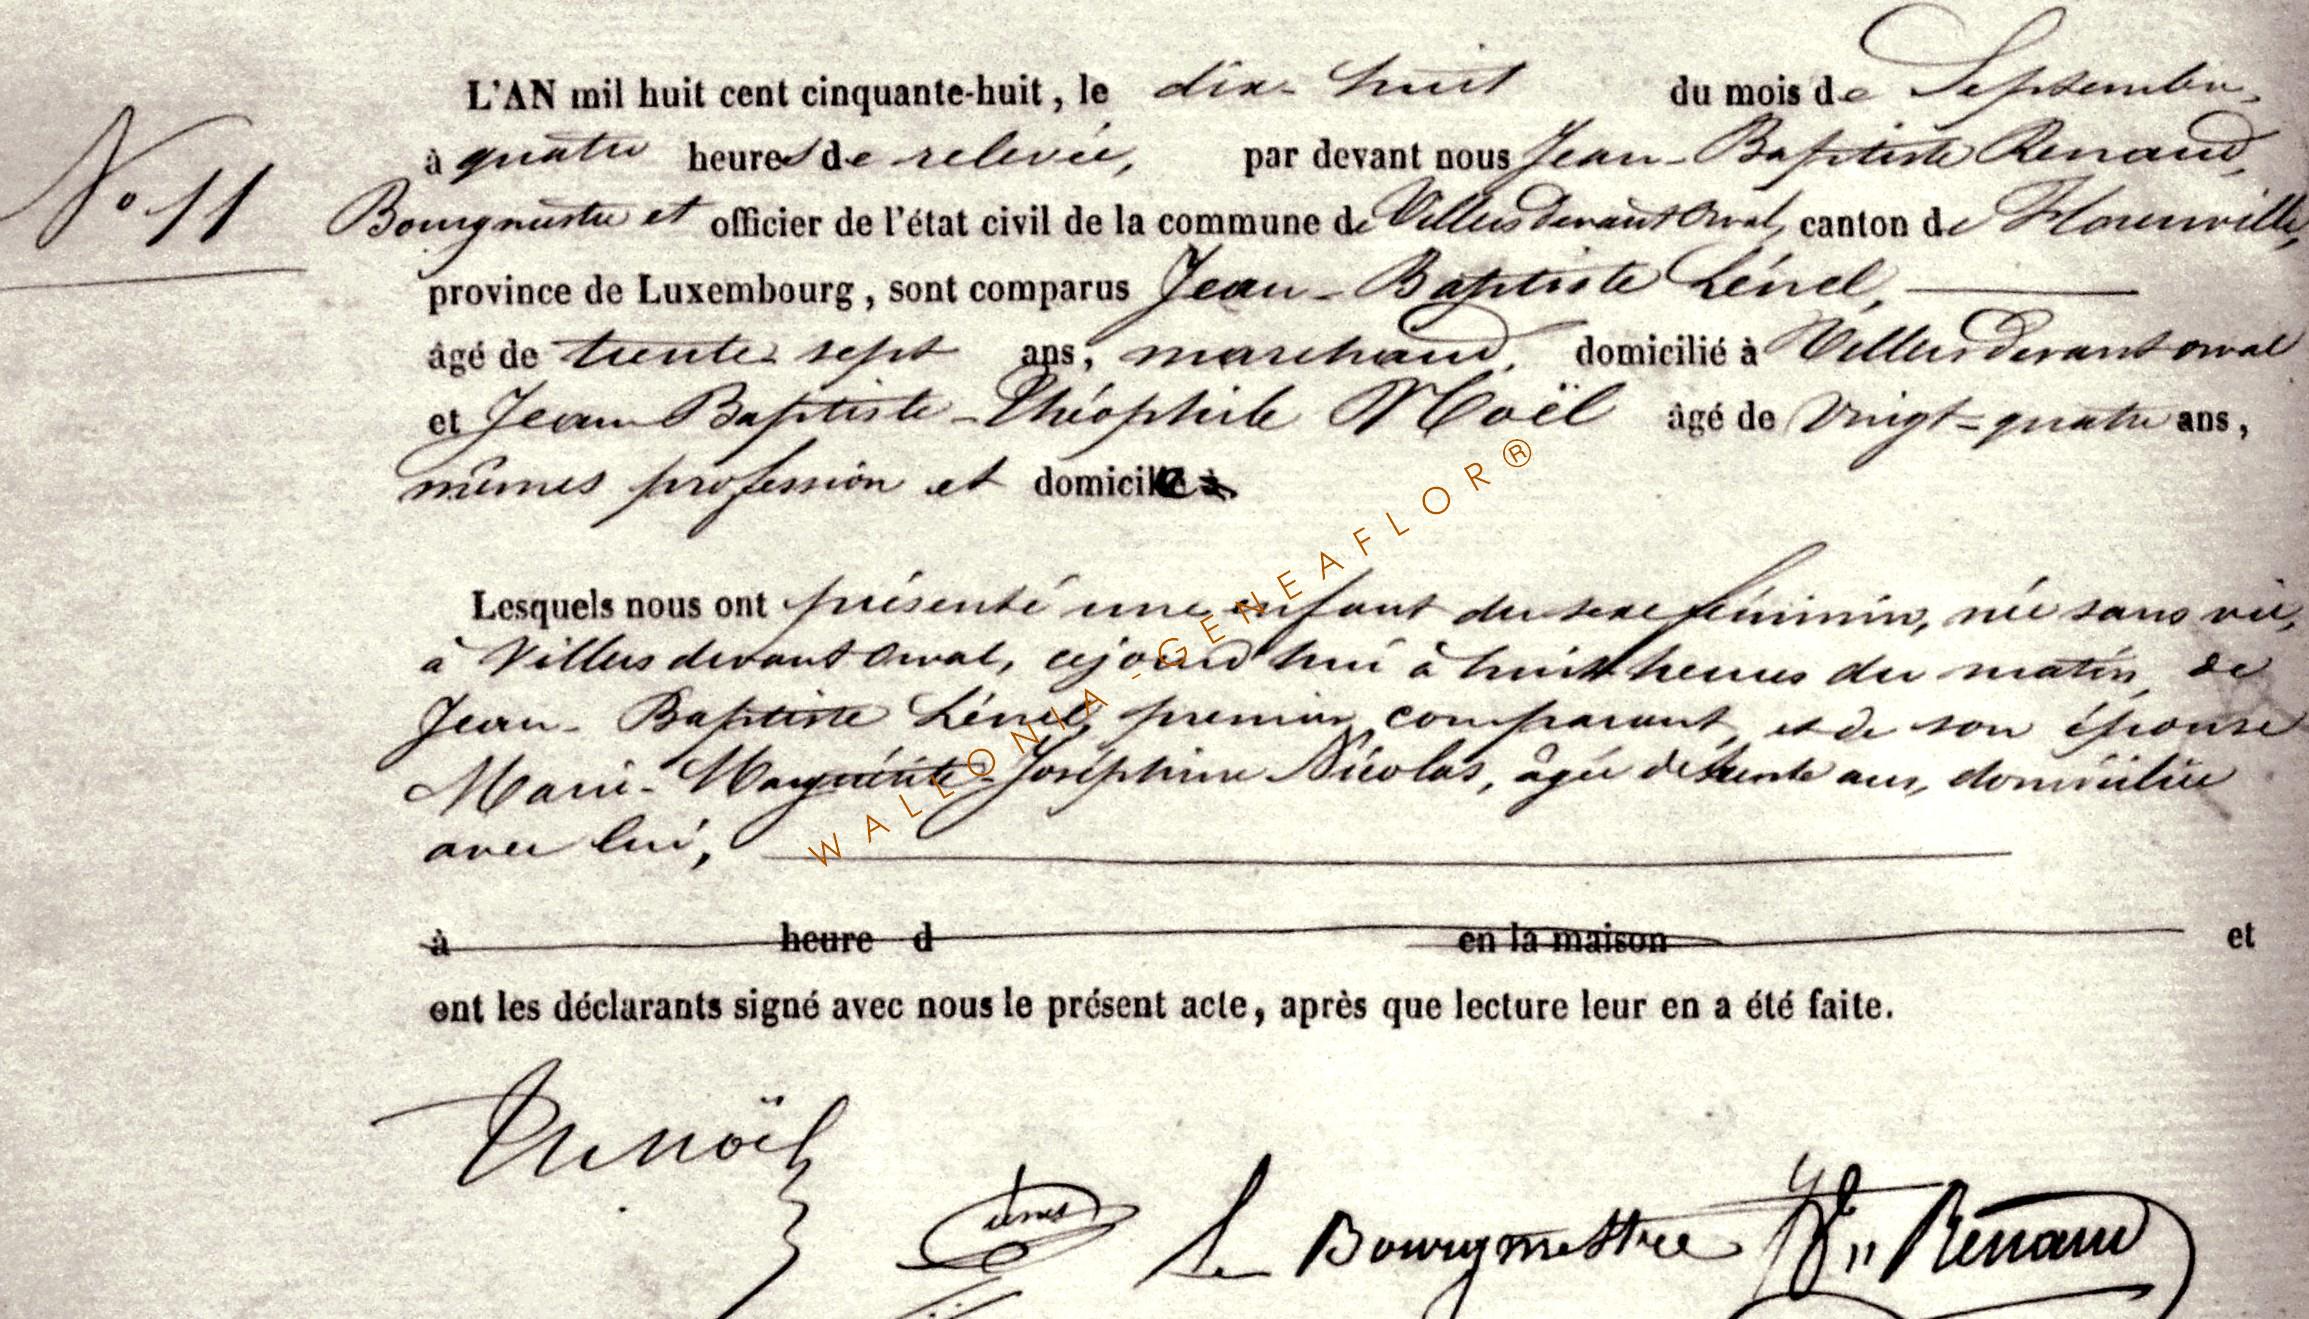 L'AN mil huit cent cinquante-huit, le dix-huit du mois de Septembre,
à quatre heures de relevée, par devant nous Jean-Baptiste Renaud,
N° 11
Bourgmestre et officier de l'état civil de la commune de Villers devant Orval, canton de Florenville,
province de Luxembourg, sont comparus Jean-Baptiste Lénel,
âgé de trente-sept ans, marchand, domicilié à Villers devant orval
et Jean Baptiste-Théophile Noël âgé de Vingt-quatre ans,
mêmes profession et domicile
Lesquels nous ont présenté une enfant du sexe féminin, née sans vie,
à Villers devant Orval, cejourd'hui à huit heures du matin, de
Jean-Baptiste Lénel, premier comparant, et de son épouse
Marie-Marguérite-Joséphine Nicolas, âgée de trente ans, domiciliée
avec lui,
à heure d en la maison et
ont les déclarants signé avec nous le présent acte, après que lecture leur en a été faite.
Noël
Le Bourgmestre Renaud
WALLONIA-GENEAFLOR®